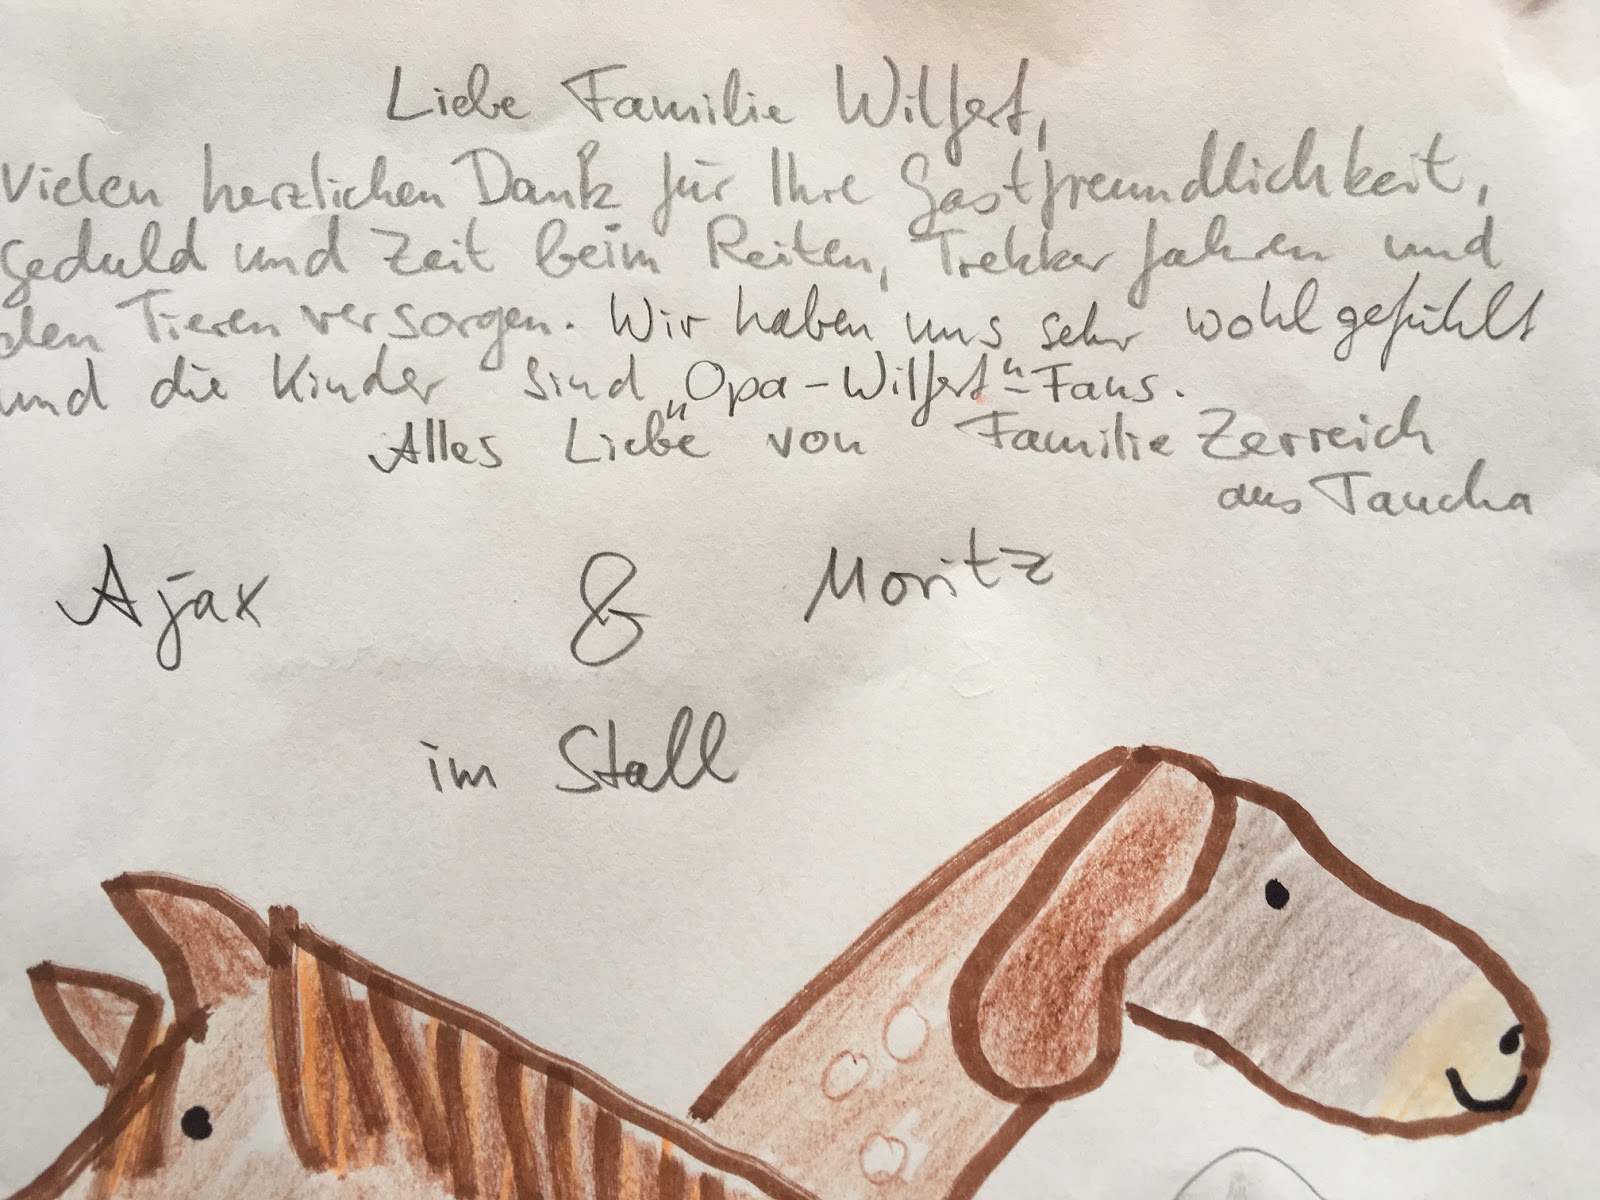 Liebe Familie Wilfert,
Vielen herzlichen Dank für Ihre Gastfreundlichkeit,
Geduld und Zeit beim Reiten, Trekker fahren und
den Tieren versorgen. Wir haben uns sehr wohl gefühlt
und die Kinder sind „Opa-Wilfert"-Fans.
Alles Liebe von Familie Zerreich
aus Taucha
Ajax & Moritz
im Stall